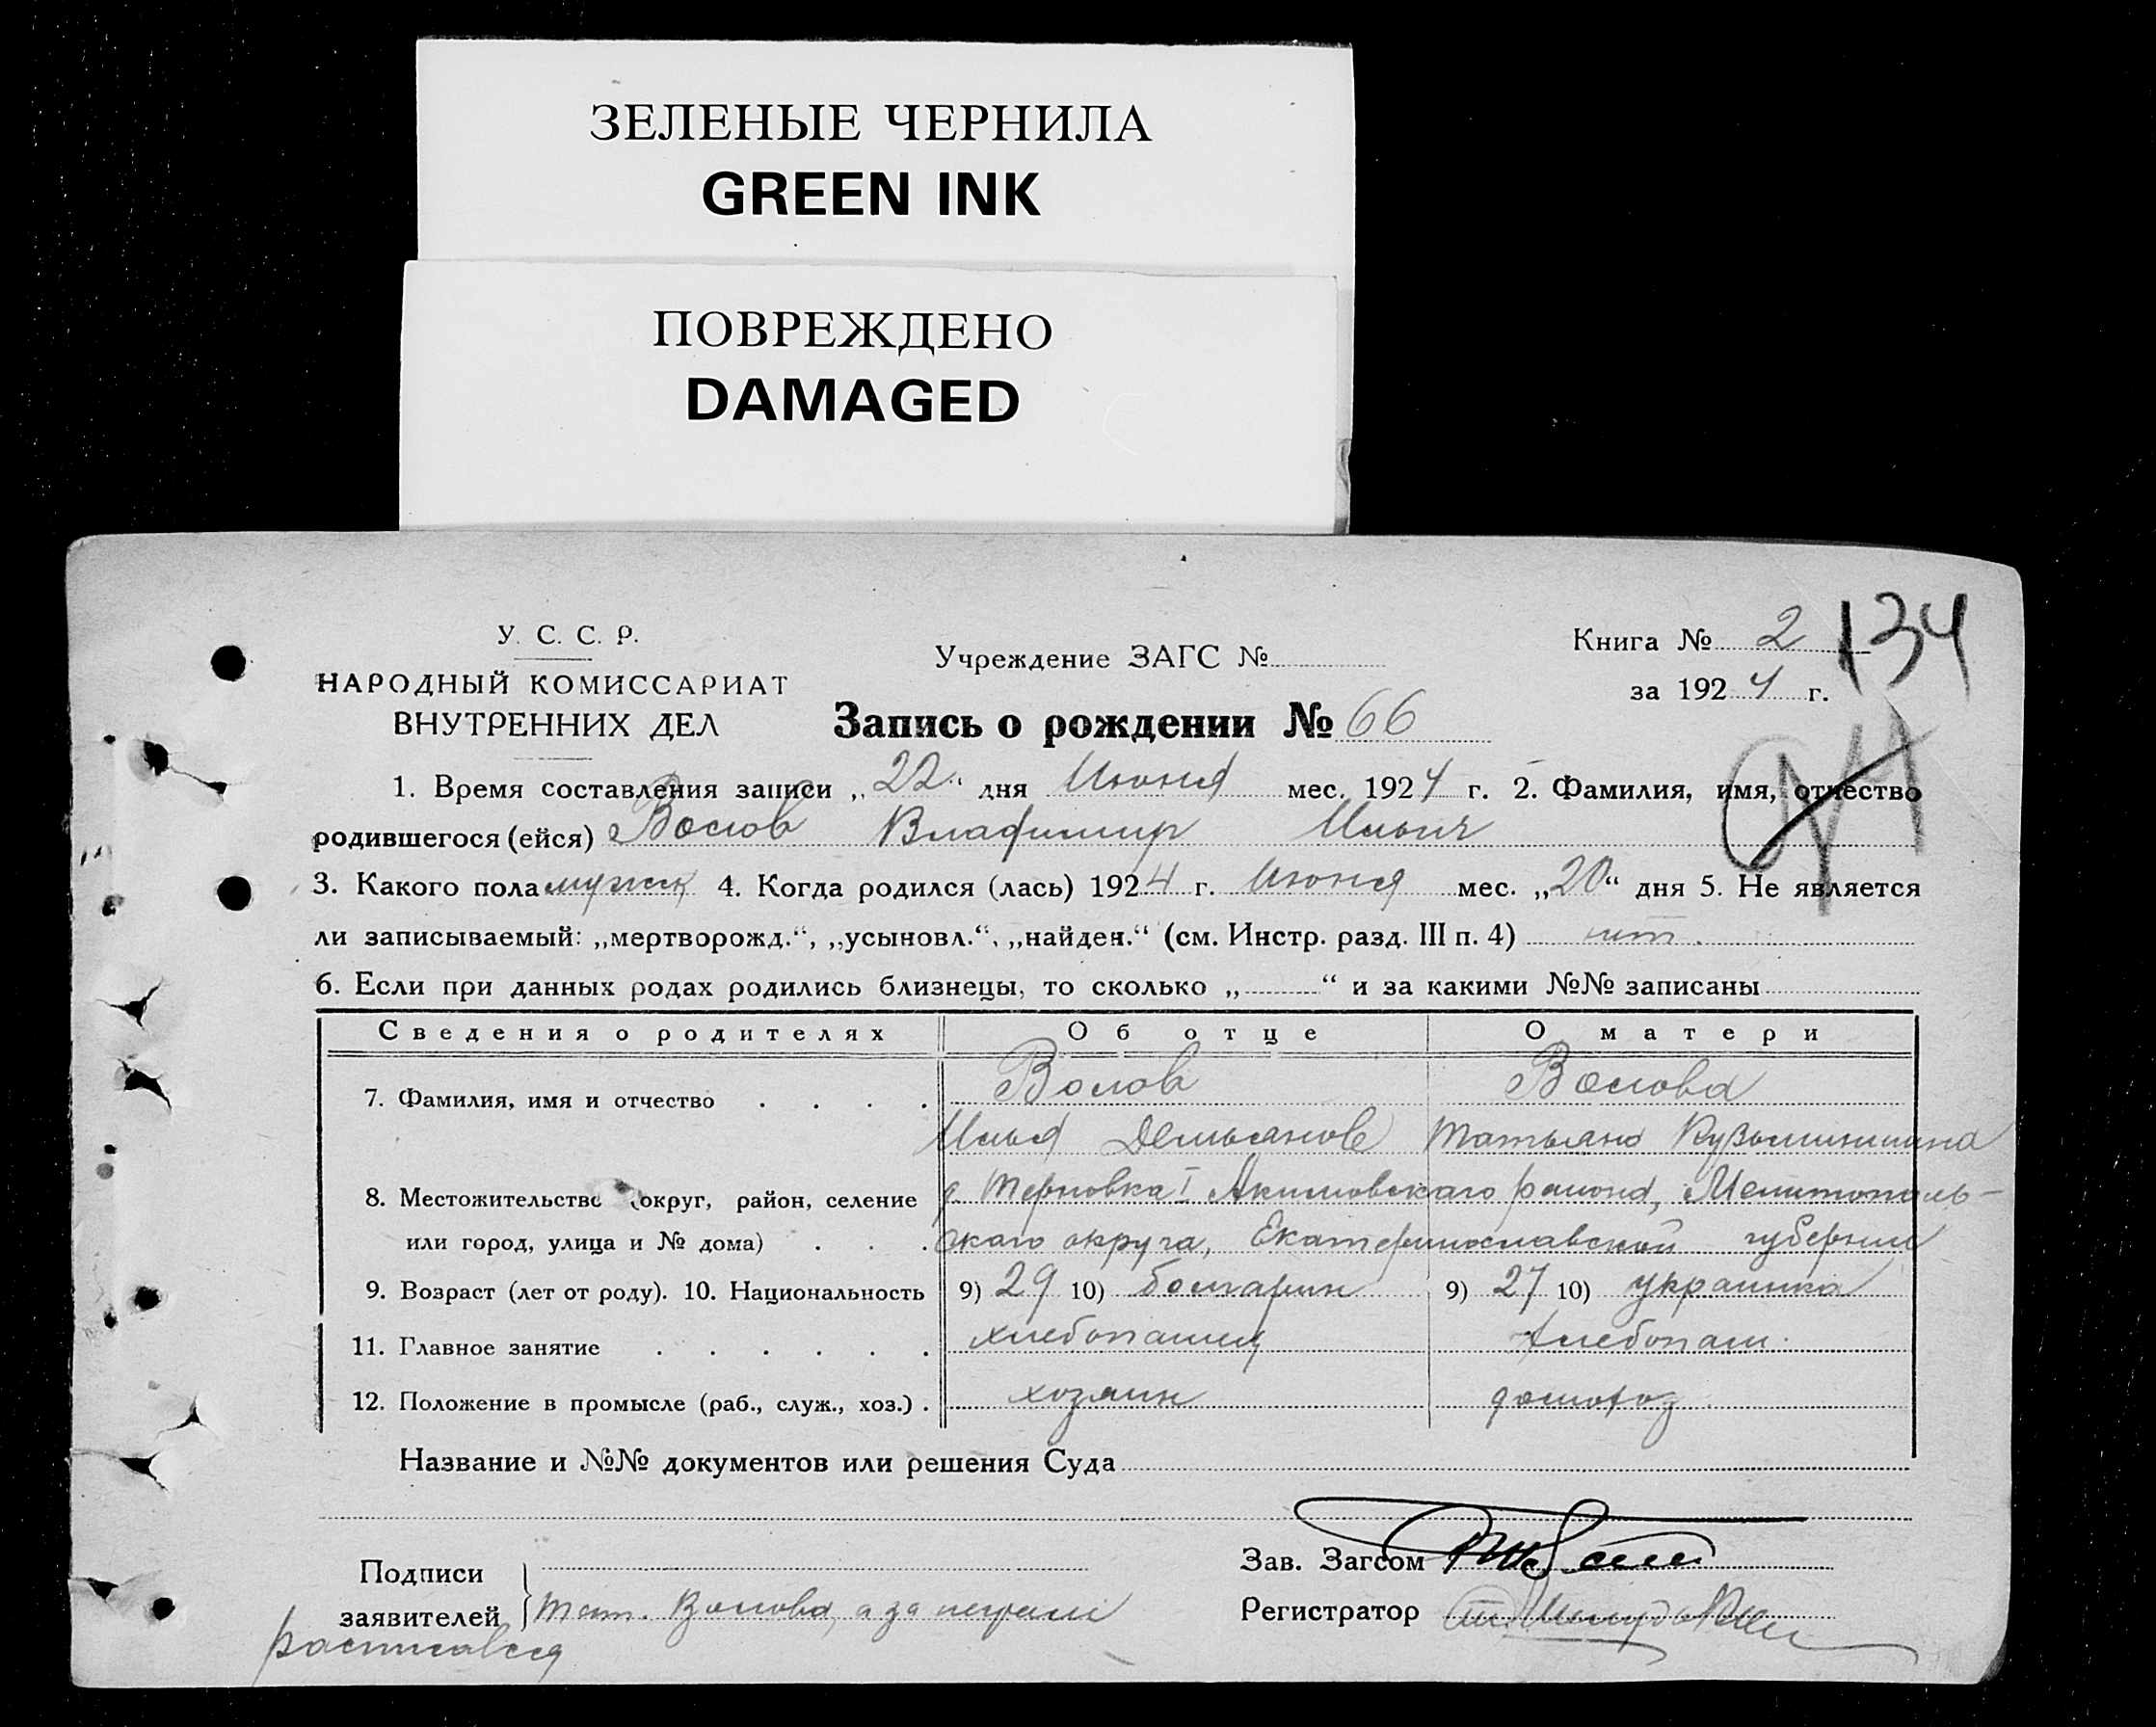 ЗЕЛЕНЫЕ ЧЕРНИЛА
GREEN INK
ПОВРЕЖДЕНО
DAMAGED
У. С. С. Р.
НАРОДНЫЙ КОМИССАРИАТ
ВНУТРЕННИХ ДЕЛ
Учреждение ЗАГС №
Книга № 2
134
за 1924 г.
Запись о рождении № 66
1. Время составления записи „22“ дня Июня мес. 1924 г. 2. Фамилия, имя, отчество
родившегося (ейся) Волов Владимир Ильич
3. Какого пола мужск 4. Когда родился (лась) 1924 г. Июня мес. „20“ дня 5. Не является
ли записываемый: „мертворожд.“, „усыновл.“, „найден.“ (см. Инстр. разд. III п. 4) нет.
6. Если при данных родах родились близнецы, то сколько „ “ и за какими №№ записаны
Сведения о родителях Об отце О матери
7. Фамилия, имя и отчество . . . . Волов Волова
Илья Демьянов Татьяна Кузьминишна
8. Местожительство (округ, район, селение Терновка I Акимовскаго района, Мелитополь-
или город, улица и № дома) . . . скаго округа, Екатеринославской губернии
9. Возраст (лет от роду). 10. Национальность 9) 29 10) болгарин 9) 27 10) украинка
11. Главное занятие . . . . . . хлебопашец хлебопаш.
12. Положение в промысле (раб., служ., хоз.) . хозяин домохоз.
Название и №№ документов или решения Суда
Подписи
заявителей Тат. Волова, а за неграм
расписався
Зав. Загсом
Регистратор